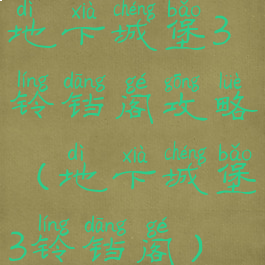 dì xià chéng bǎo
地下城堡3
líng dāng gé gōng lüè
铃铛阁攻略
dì xià chéng bǎo
(地下城堡
líng dāng gé
3铃铛阁)